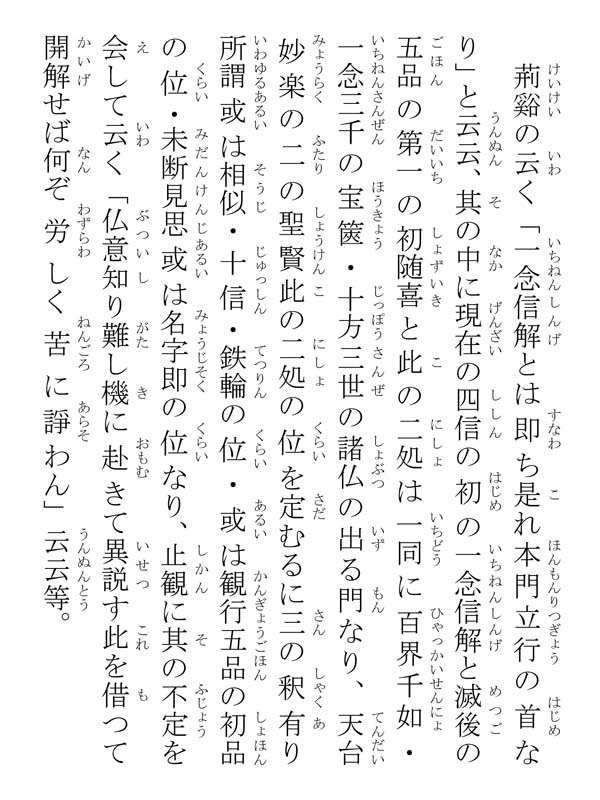 荊谿の云く「一念信解とは即ち是れ本門立行の首な
り」と云云、其の中に現在の四信の初の一念信解と滅後の
五品の第一の初随喜と此の二処は一同に百界千如・
一念三千の宝篋・十方三世の諸仏の出る門なり、天台
妙楽の二の聖賢此の二処の位を定むるに三の釈有り
所謂或は相似・十信・鉄輪の位・或は観行五品の初品
の位・未断見思或は名字即の位なり、止観に其の不定を
会して云く「仏意知り難し機に赴きて異説す此を借つて
開解せば何ぞ労しく苦に諍わん」云云等。